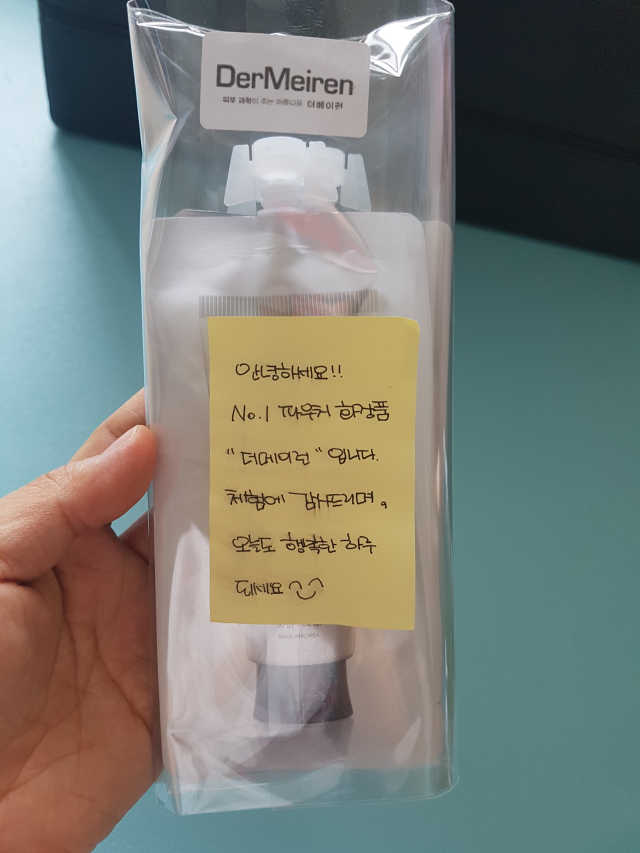 DerMeiren
피부 과학이 주는 아름다움 더메이런
안녕하세요!!
No.1 파우치 화장품
"더메이런" 입니다.
체험에 감사드리며,
오늘도 행복한 하루
되세요